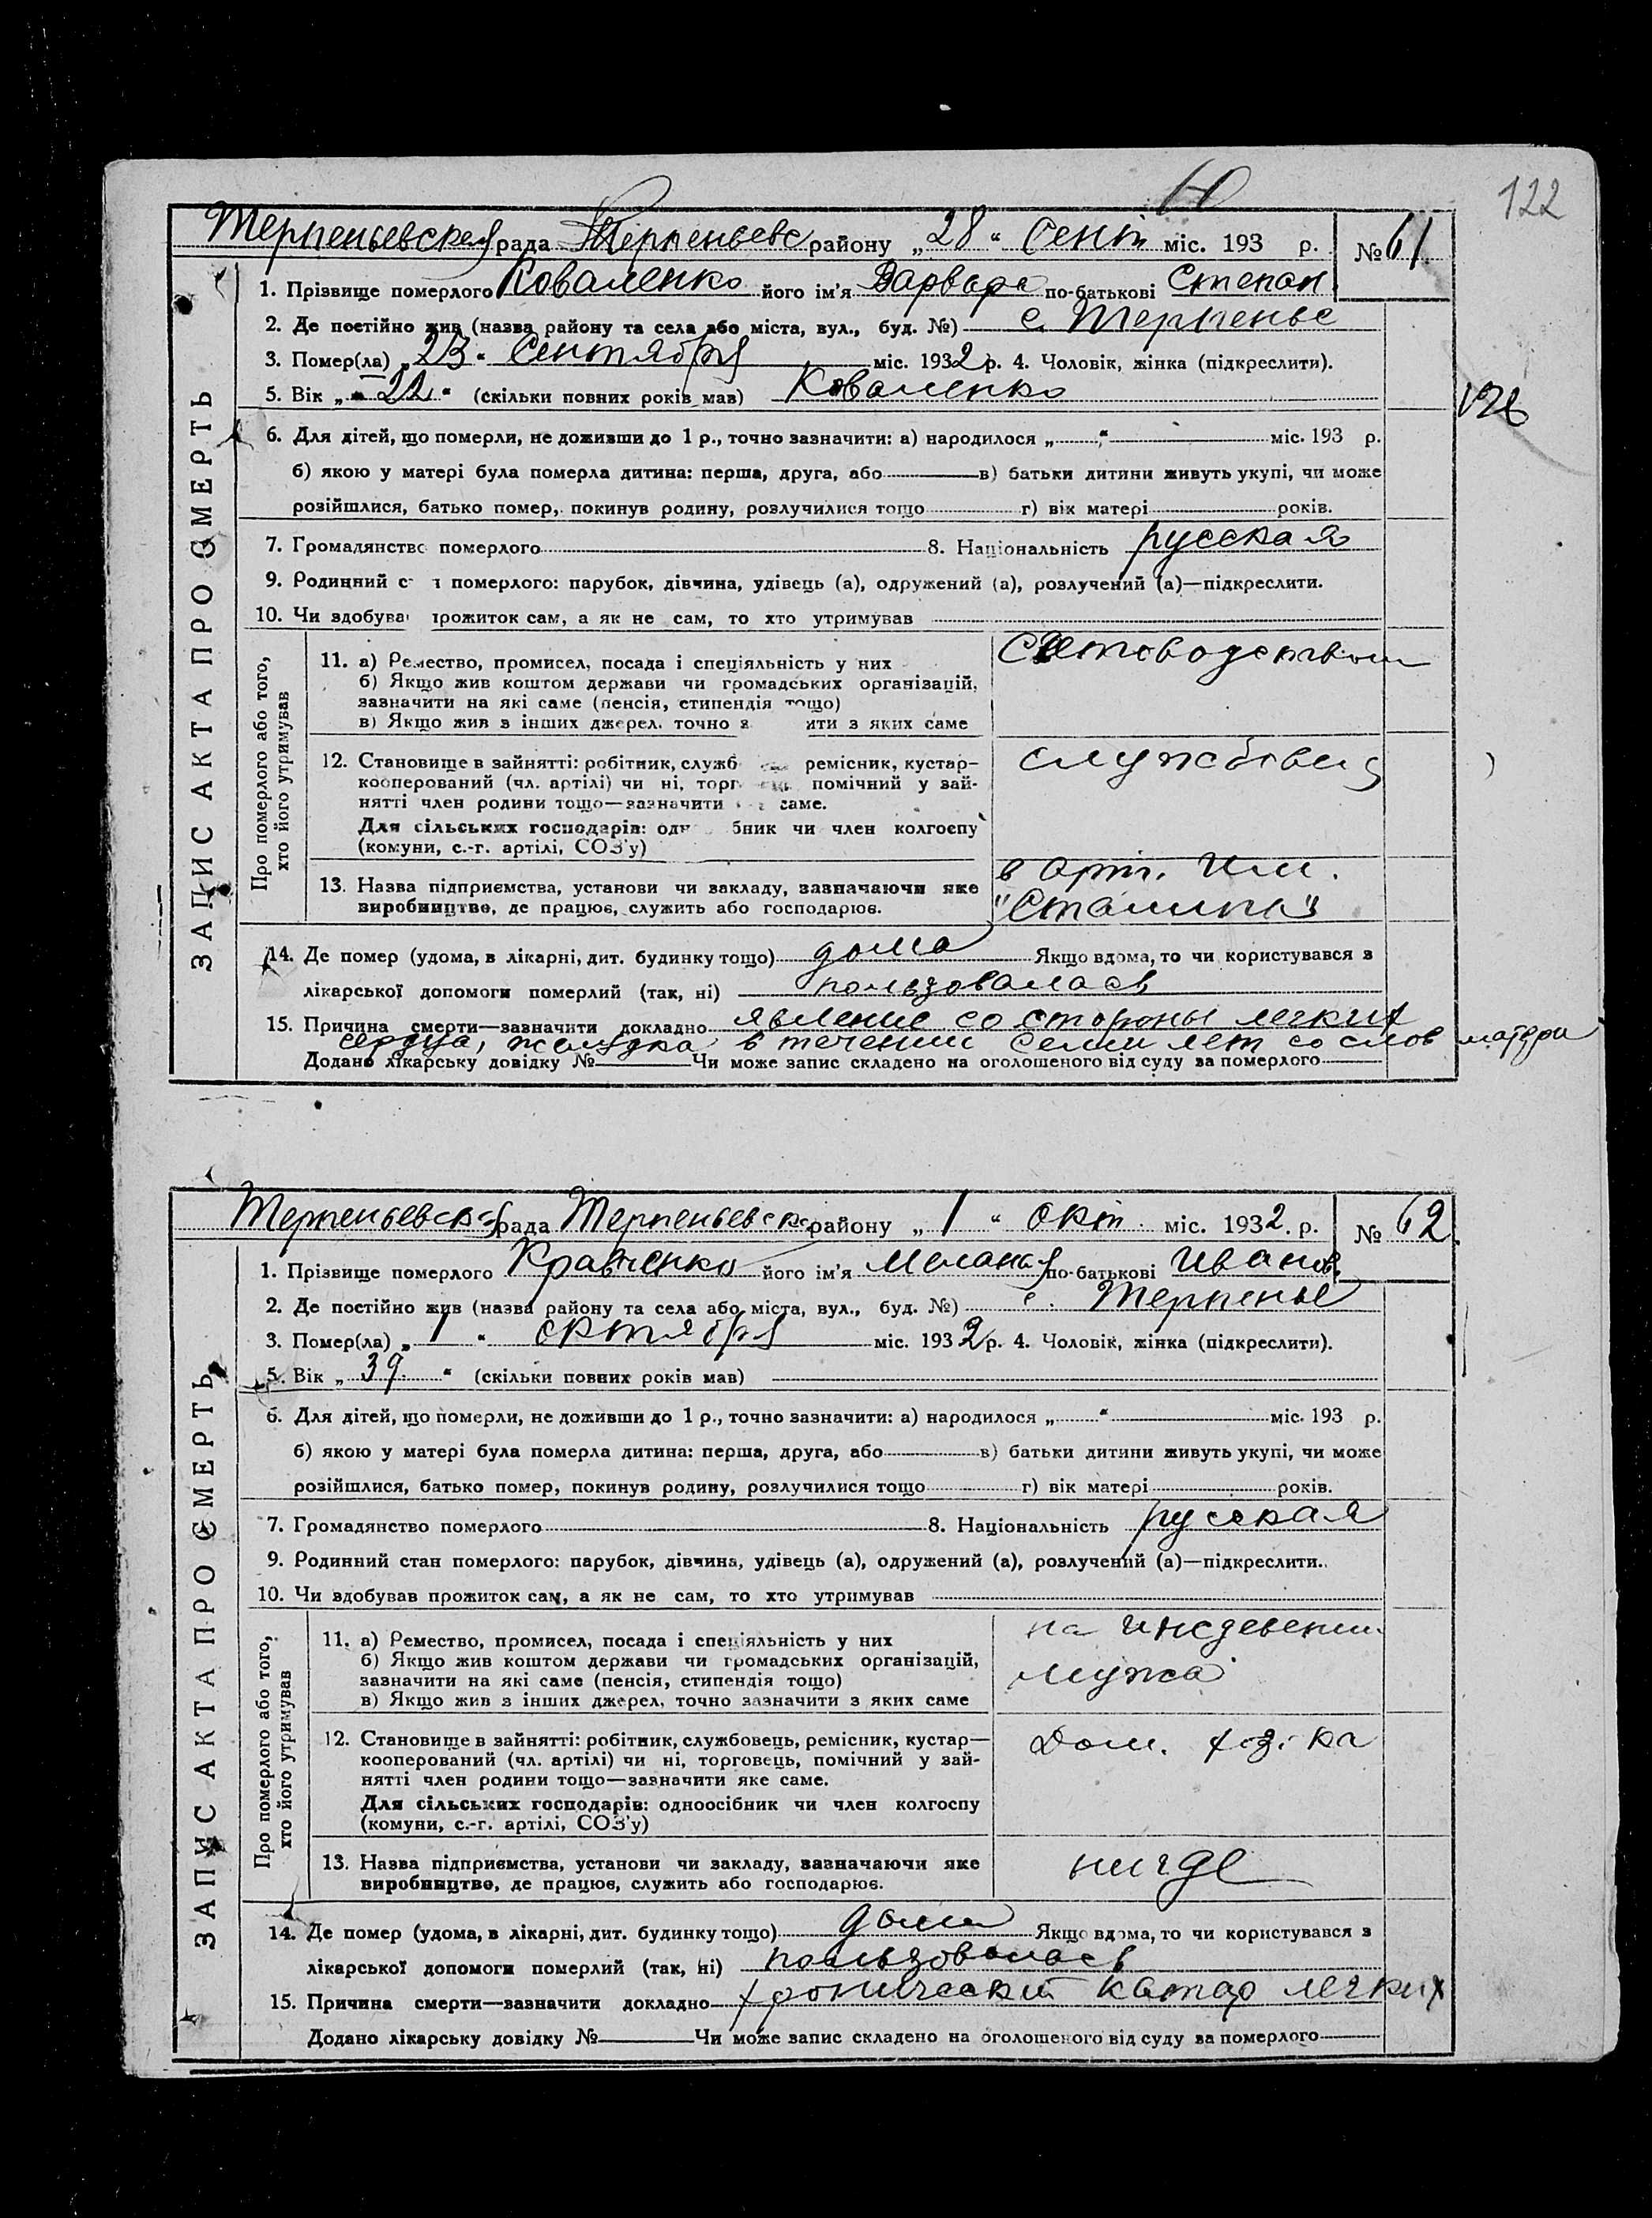 122
Терпеньевская рада Терпеньевс району „28“ Сент міс. 193 р. № 61
1. Прізвище померлого Коваленко його ім’я Варвара по-батькові Степан.
2. Де постійно жив (назва району та села або міста, вул., буд. №) с. Терпенье
3. Помер(ла) „23“ Сентября міс. 1932 р. 4. Чоловік, жінка (підкреслити).
5. Вік „22“ (скільки повних років мав) Коваленко
126
6. Для дітей, що померли, не доживши до 1 р., точно зазначити: а) народилося „ “ міс. 193 р.
б) якою у матері була померла дитина: перша, друга, або в) батьки дитини живуть укупі, чи може
розійшлися, батько помер, покинув родину, розлучилися тощо г) вік матері років.
7. Громадянство померлого 8. Національність русская
9. Родинний с т померлого: парубок, дівчина, удівець (а), одружений (а), розлучений (а)—підкреслити.
10. Чи здобува прожиток сам, а як не сам, то хто утримував
ЗАПИС АКТА ПРО СМЕРТЬ
Про померлого або того, хто його утримував
11. а) Ремество, промисел, посада і спеціяльність у них
б) Якщо жив коштом держави чи громадських організацій,
зазначити на які саме (пенсія, стипендія тощо)
в) Якщо жив з інших джерел, точно з ити з яких саме
12. Становище в зайнятті: робітник, служб ремісник, кустар–
кооперований (чл. артілі) чи ні, торг помічний у зай-
нятті член родини тощо—зазначити саме.
службовец
Для сільських господарів: од бник чи член колгоспу
(комуни, с.-г. артілі, СОЗ’у)
13. Назва підприємства, установи чи закладу, зазначаючи яке
виробництво, де працює, служить або господарює.
в арт. Им.
"Сталина"
14. Де помер (удома, в лікарні, дит. будинку тощо) дома Якщо вдома, то чи користувався з
лікарської допомоги померлий (так, ні) пользовалась
15. Причина смерти—зазначити докладно явление со стороны легких
сердца, желудка в течении семи лет со слов матери
Додано лікарську довідку № Чи може запис складено на оголошеного від суду за померлого
Терпеньевская рада Терпеньевск району „1“ окт. міс. 1932. р. № 62.
1. Прізвище померлого Кравченко його ім’я Мелания по-батькові Иванов.
2. Де постійно жив (назва району та села або міста, вул., буд. №) с. Терпенье
3. Помер(ла) „1“ октября міс. 1932 р. 4. Чоловік, жінка (підкреслити).
5. Вік „39.“ (скільки повних років мав)
6. Для дітей, що померли, не доживши до 1 р., точно зазначити: а) народилося „ “ міс. 193 р.
б) якою у матері була померла дитина: перша, друга, або в) батьки дитини живуть укупі, чи може
розійшлися, батько помер, покинув родину, розлучилися тощо г) вік матері років.
7. Громадянство померлого 8. Національність русская
9. Родинний стан померлого: парубок, дівчина, удівець (а), одружений (а), розлучений (а)—підкреслити.
10. Чи здобував прожиток сам, а як не сам, то хто утримував
ЗАПИС АКТА ПРО СМЕРТЬ
Про померлого або того, хто його утримував
11. а) Ремество, промисел, посада і спеціяльність у них
б) Якщо жив коштом держави чи громадських організацій,
зазначити на які саме (пенсія, стипендія тощо)
в) Якщо жив з інших джерел, точно зазначити з яких саме
на иждевении
мужа
12. Становище в зайнятті: робітник, службовець, ремісник, кустар—
кооперований (чл. артілі) чи ні, торговець, помічний у зай-
нятті член родини тощо—зазначити яке саме.
Дом. хоз-ка
Для сільських господарів: одноосібник чи член колгоспу
(комуни, с.-г. артілі, СОЗ’у)
13. Назва підприємства, установи чи закладу, зазначаючи яке
виробництво, де працює, служить або господарює.
нигде
14. Де помер (удома, в лікарні, дит. будинку тощо) дома Якщо вдома, то чи користувався з
лікарської допомоги померлий (так, ні) пользовалась
15. Причина смерти—зазначити докладно хронический катар легких
Додано лікарську довідку № Чи може запис складено на оголошеного від суду за померлого